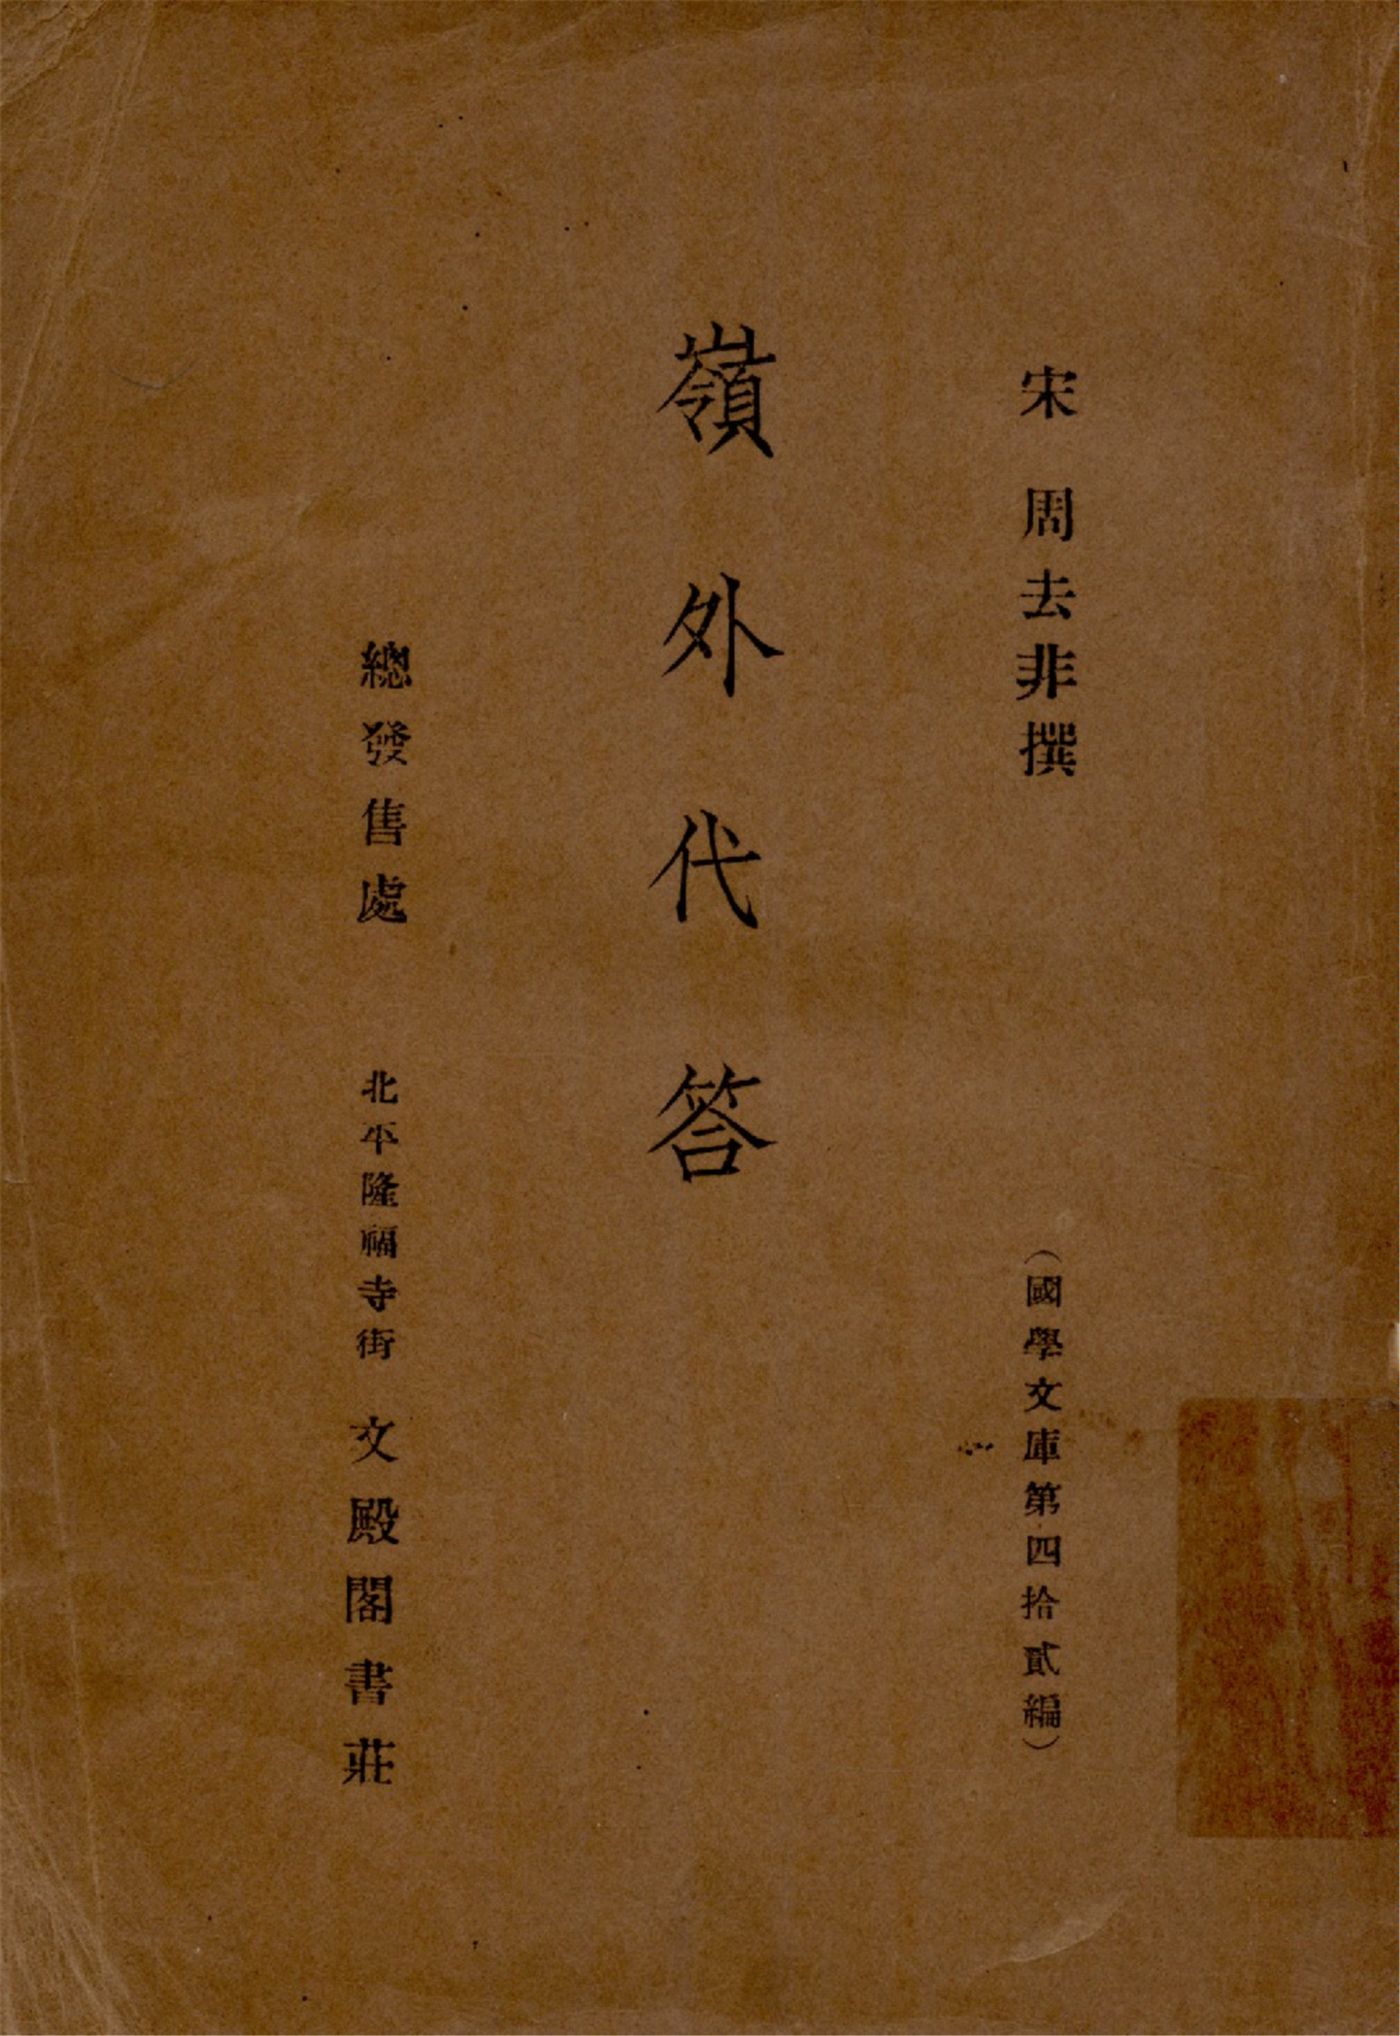 宋　周去非撰
（國學文庫第四拾貳編）
嶺外代答
總發售處　北平隆福寺街　文殿閣書莊